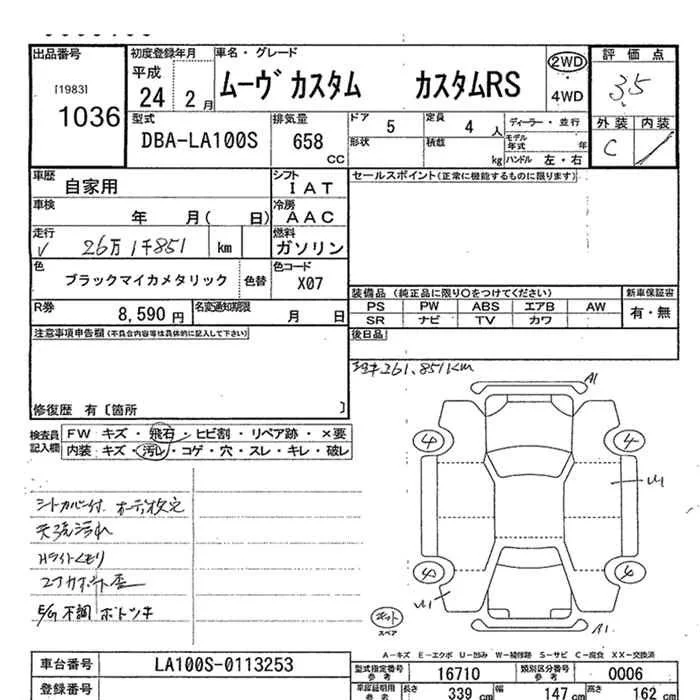 出品番号 初度登録年月 車名・グレード 評価点
[1983] 平成 ムーヴ カスタム カスタムRS 2WD 3.5
1036 24 2月 4WD
型式 排気量 ドア 5 定員 4人 ディーラー・並行 外装 内装
DBA-LA100S 658 CC 形状 積載 kg モデル年式 年 C
ハンドル 左・右
車歴 自家用 シフト IAT セールスポイント(正常に機能するものに限ります)
車検 年 月( 日) 冷房 AAC
走行 26万1千851 km 燃料 ガソリン
色 ブラックマイカメタリック 色替 色コード X07
装備品 (純正品に限り○をつけてください) 新車保証書
R券 8,590円 名変通知期限 月 日 PS PW ABS エアB AW 有・無
SR ナビ TV カワ
注意事項申告欄(不具合内容等は具体的に記入して下さい) 後日品
261,851km
修復歴 有〔箇所 〕
検査員記入欄 FW キズ・飛石・ヒビ割・リペア跡・×要
内装 キズ・汚レ・コゲ・穴・スレ・キレ・破レ
A1
シートカバー付
天张汚れ
Hライトくもり
E/G不調
スペア
A1
A-キズ E-エクボ U-凹み W-補修跡 S-サビ C-腐食 XX-交換済
車台番号 LA100S-0113253 型式指定番号 参考 16710 類別区分番号 参考 0006
登録番号 車庫証明用 参考 長さ 339cm 幅 147cm 高さ 162cm